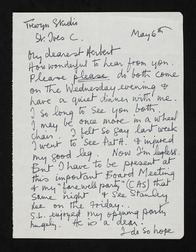 Trewyn Studio
St Ives C. May 6th
My dearest Herbert
How wonderful to hear from you.
Please please do both come
on the Wednesday evening &
have a quiet dinner with me.
I so long to see you both.
I may be once more in a wheel
chair. I felt so gay last week
I went to See PatH. & injured
my good leg. Now I'm legless.
But I have to be present at
this important Board Meeting
& my "farewell party" (CAS) that
same night & see Stanley
lee on the Friday.
S.L. enjoyed my opening party
hugely. He is a dear.
I do so hope